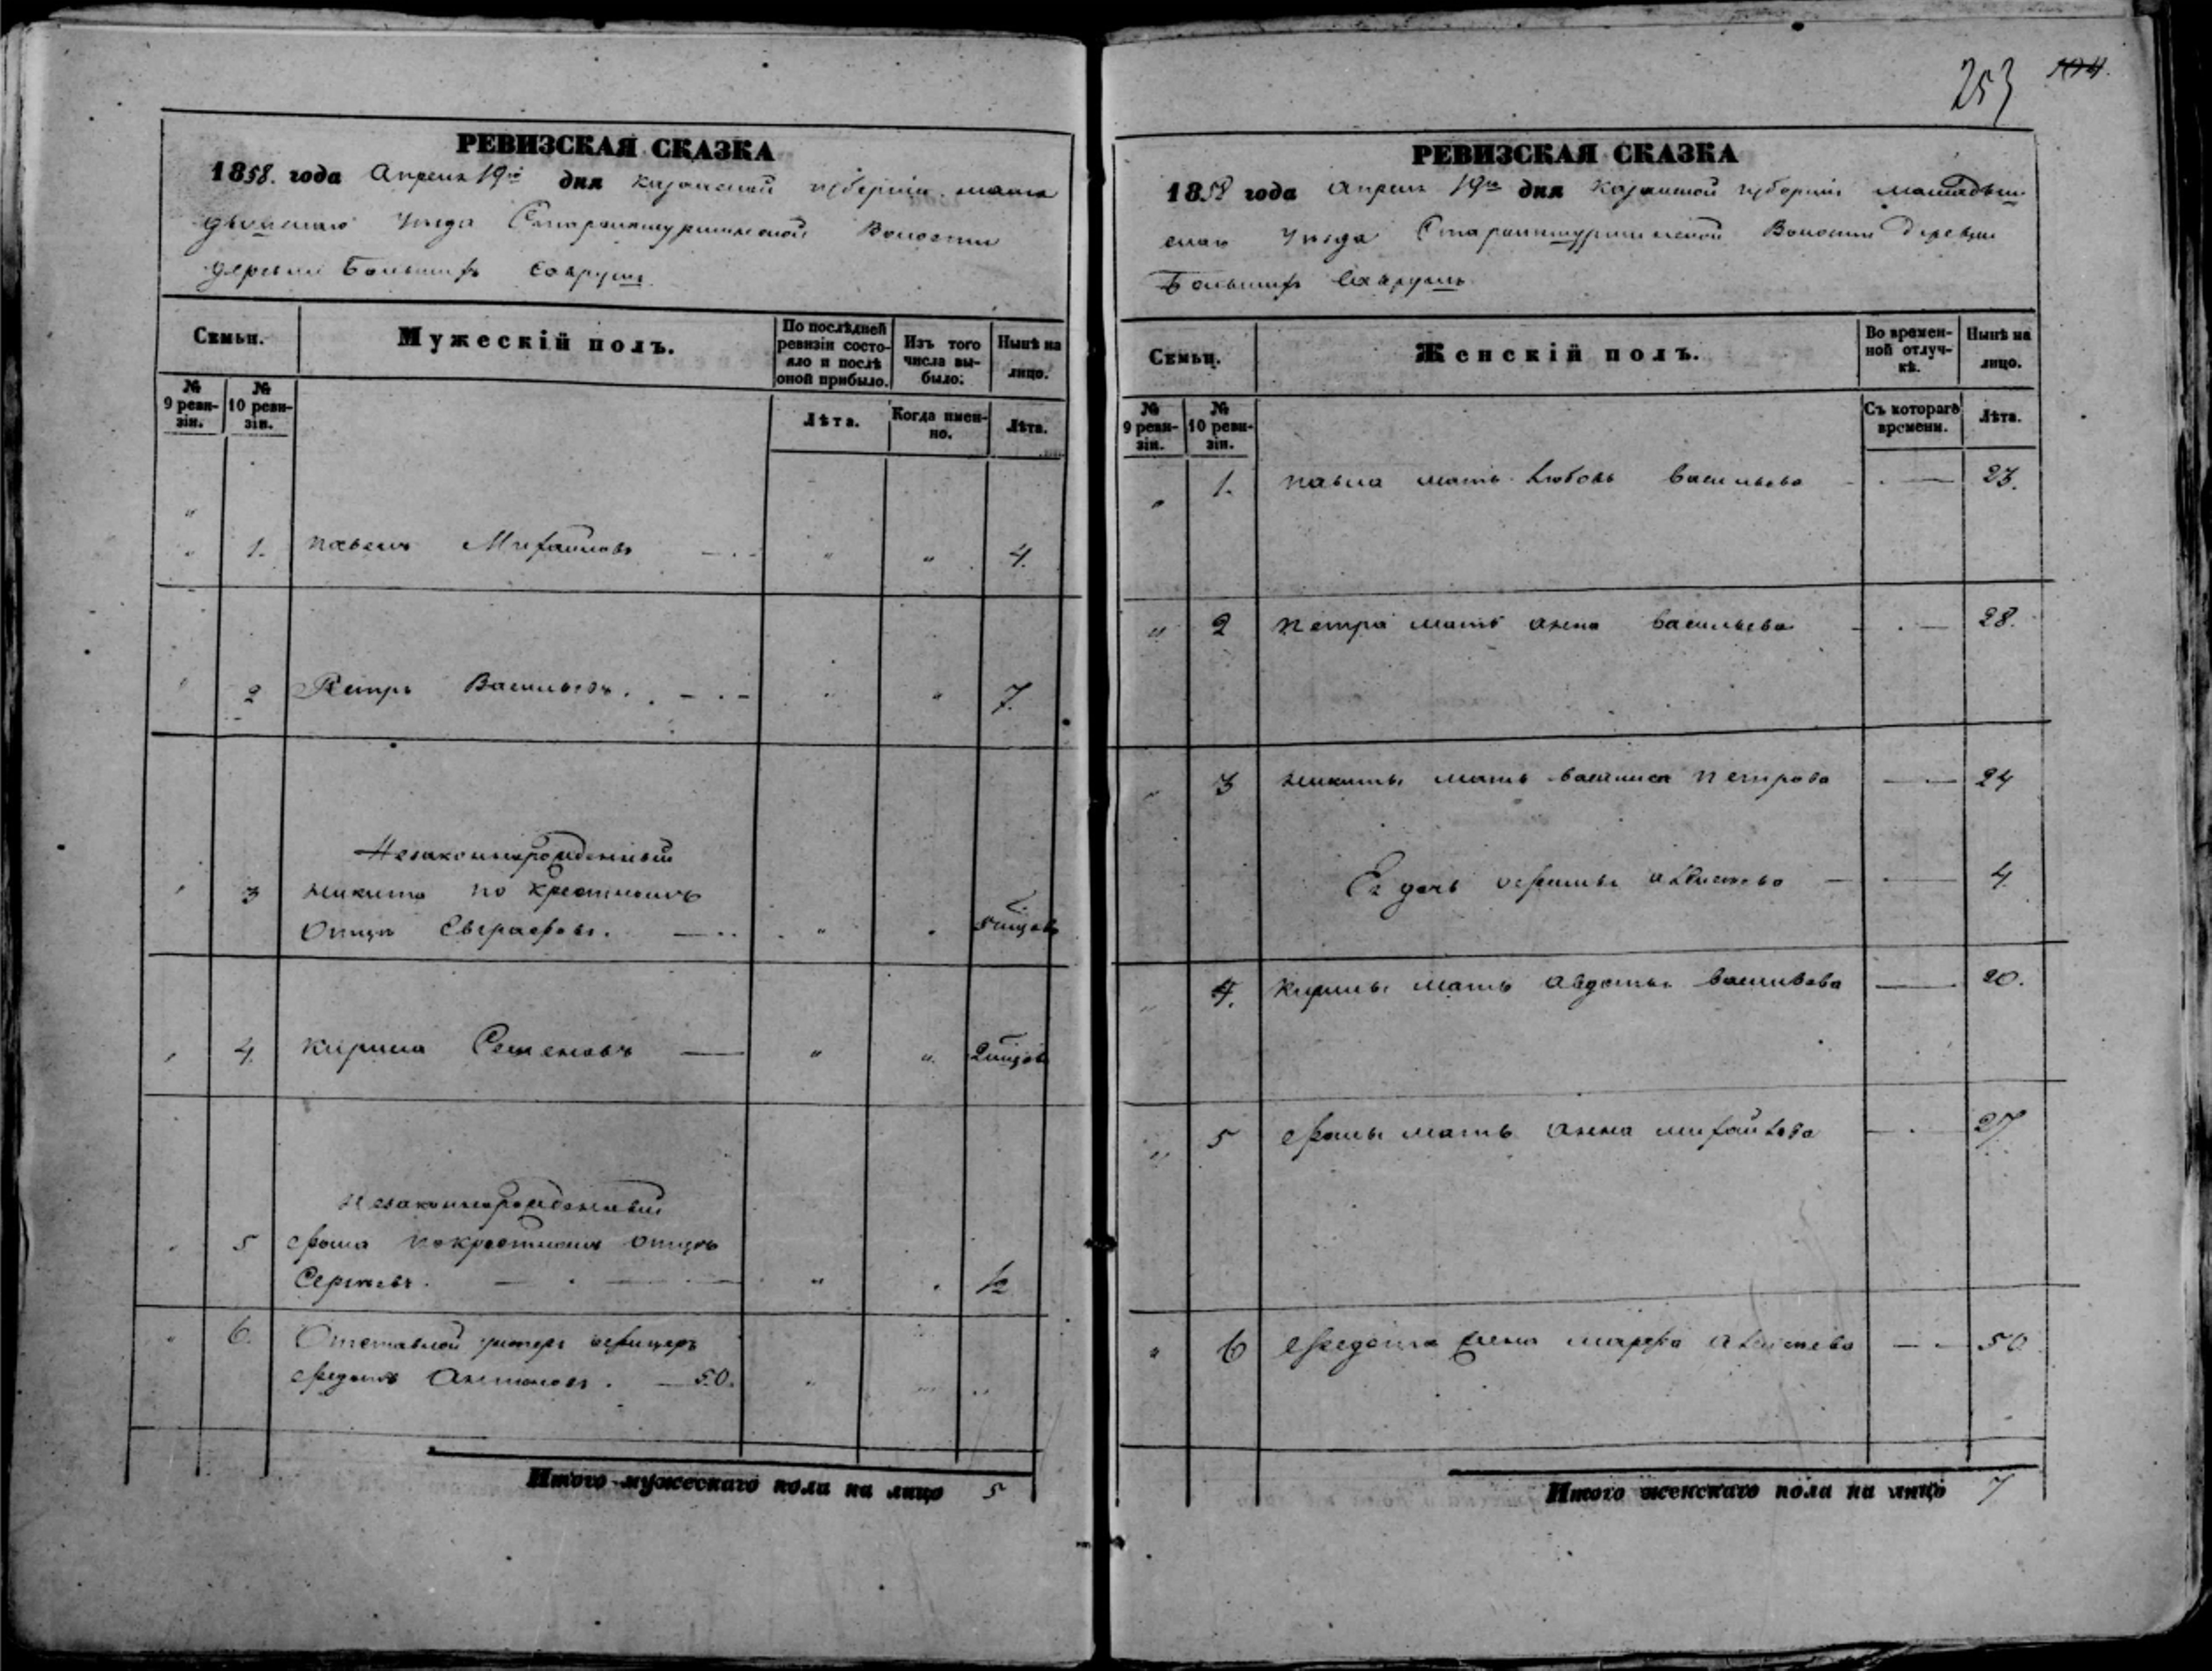 РЕВИЗСКАЯ СКАЗКА
1858. года Апреля 19го дня Казанской губерніи мама
дышскаго уезда Старо Волости
деревни Большихъ
Семьи.
Мужескій полъ.
По послѣдней ревизіи состояло и послѣ оной прибыло.
Изъ того числа выбыло.
Нынѣ на лицо.
№ 9 ревизіи.
№ 10 ревизіи.
Лѣта.
Когда именно.
Лѣта.
" 1. павелъ Михайловъ " " 4.
" 2 Петръ Васильевъ. " " 7.
Незаконнорожденный
" 3 никита по крестному
отцу Евграфовъ. " " 5 мѣцовъ
" 4. кирила Семеновъ " " 2 мѣцовъ
незаконнорожденный
" 5 фома по крестному отцу
Сергѣевъ. " " 1/2
" 6. Отставной унтеръ офицеръ
федотъ Антоновъ. 50. " " "
Итого мужескаго пола на лицо 5
253 104.
РЕВИЗСКАЯ СКАЗКА
1858 года апреля 19го дня казанской губерніи мамадыш
скаго уезда Старо Волости деревни
Большихъ
Семьи.
Женскій полъ.
Во временной отлучкѣ.
Нынѣ на лицо.
№ 9 ревизіи.
№ 10 ревизіи.
Съ котораго времени.
Лѣта.
" 1. павла мать Любовь васильева 23.
" 2 петра мать анна васильева 28.
" 3 никиты мать василиса петрова 24
Ее дочь 4
" 4. кирилы мать авдотья васильева 20.
" 5 фомы мать анна михайлова 27
" 6 федота жена марфа 50
Итого женскаго пола на лицо 7